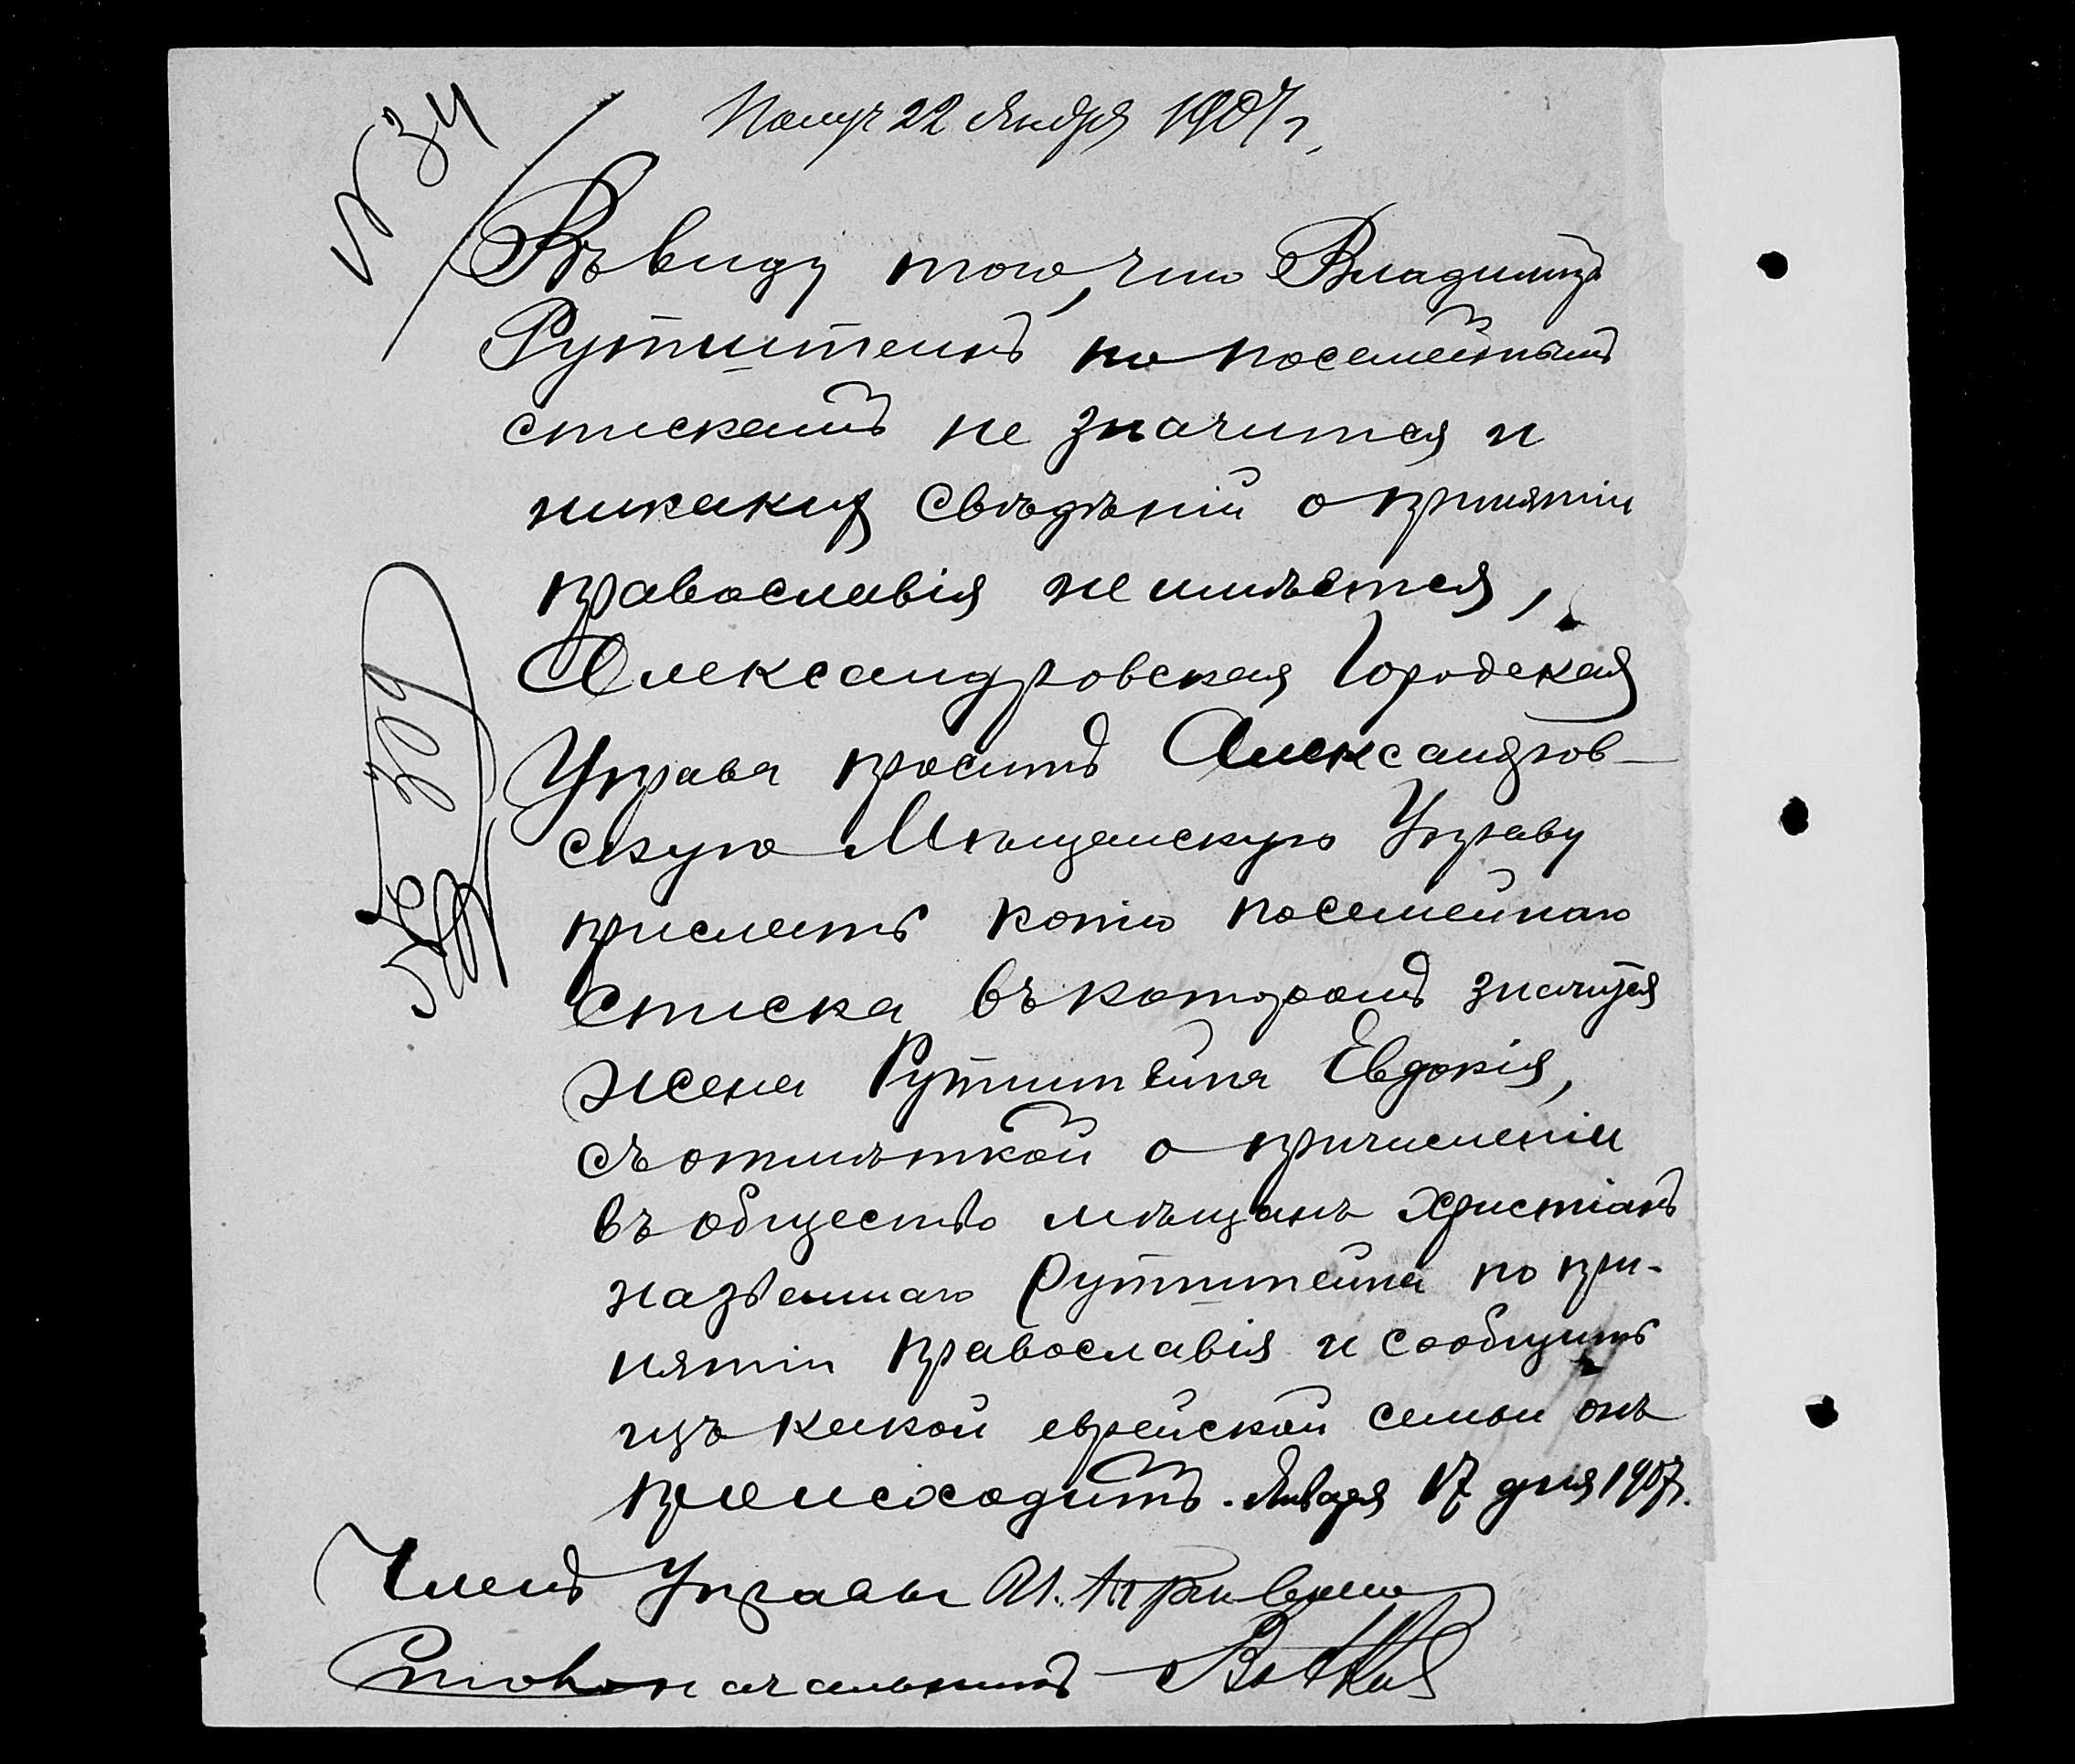 № 34
Получ 22 Января 1907 г.
Въ виду того, что Владиміръ
Рутштейнъ по посемейнымъ
спискамъ не значится и
никакихъ свѣдѣній о принятіи
православія не имѣется,
Александровская Городская
Управа проситъ Александров-
скую Мѣщанскую Управу
прислать копію посемейнаго
списка въ которомъ значится
жена Рутштейна Евдокія,
съ отмѣткой о причисленіи
въ общество мѣщанъ христіанъ
названнаго Рутштейна по при-
нятіи православія и сообщить
изъ какой еврейской семьи онъ
происходитъ. Января 17 дня 1907 г.
№ 309
Членъ Управы
Столоначальникъ